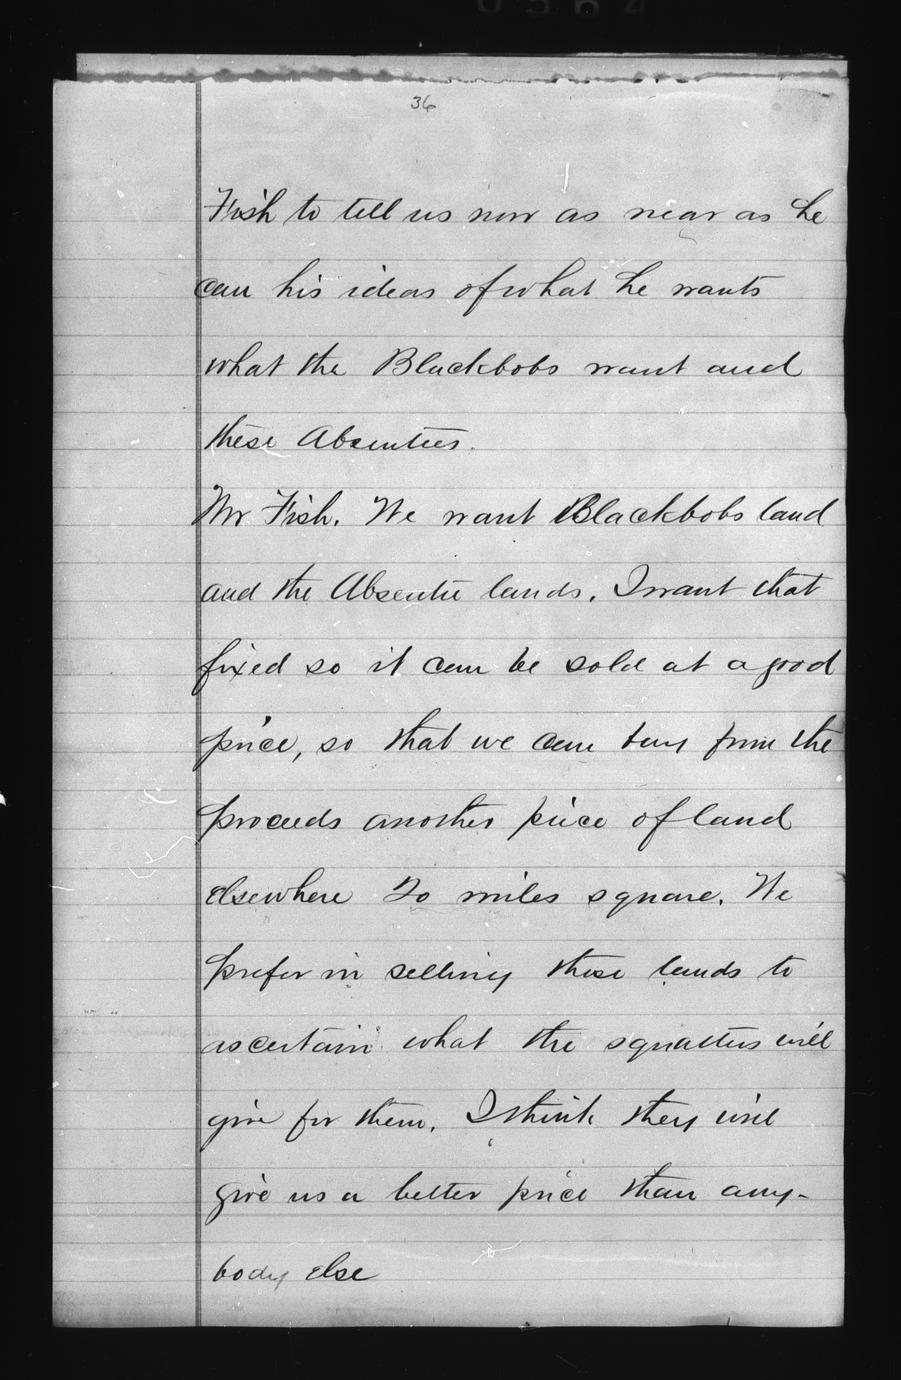 36
Fish to tell us now as near as he
can his ideas of what he wants
what the Blackbobs want and
these Absentees.
Mr Fish. We want Blackbobs land
and the Absentee lands. I want that
fixed so it can be sold at a good
price, so that we can buy from the
proceeds another piece of land
elsewhere 20 miles square. We
prefer in selling these lands to
ascertain what the squatters will
give for them. I think they will
give us a better price than any-
body else